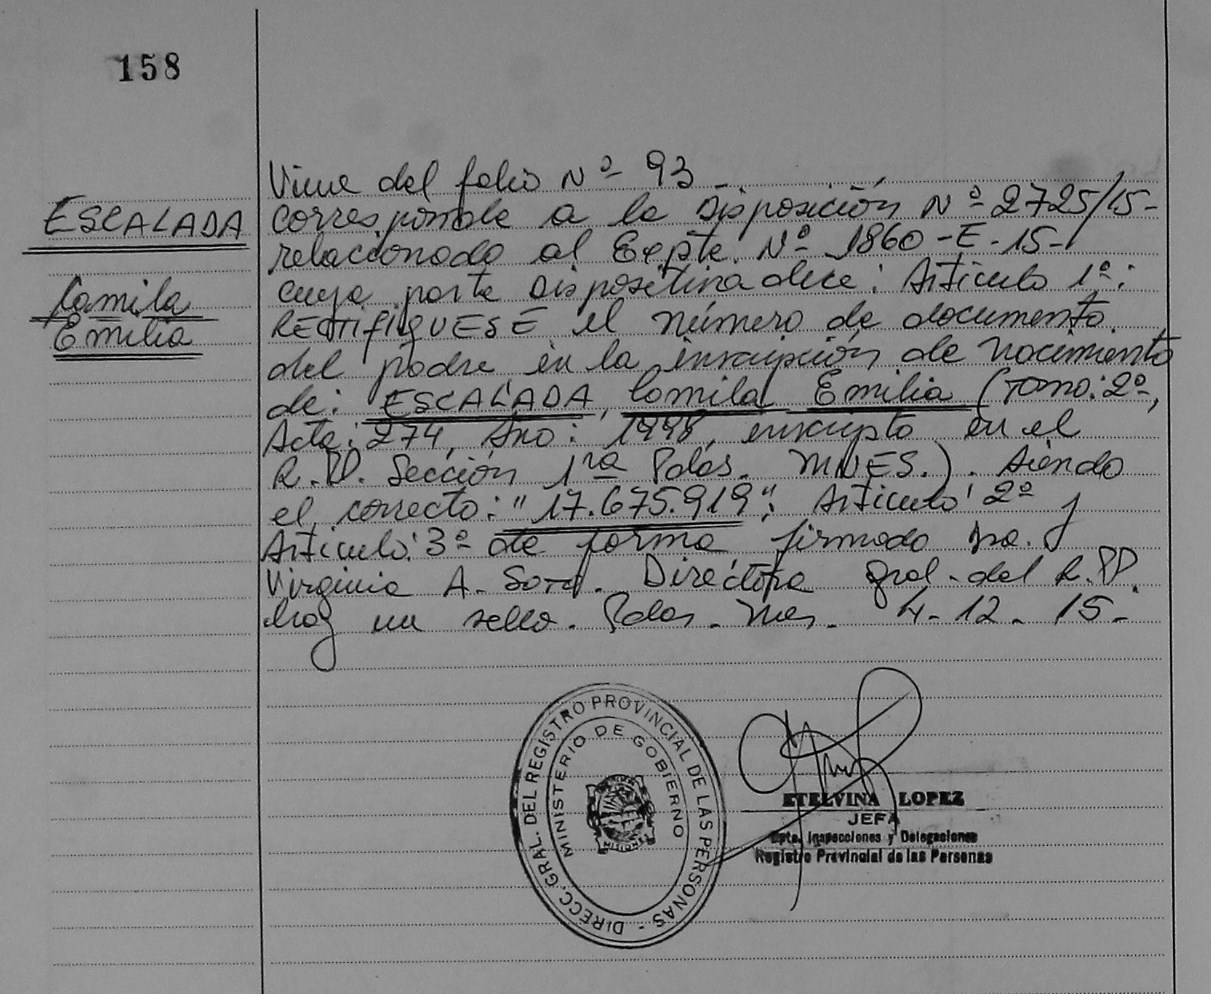 158
ESCALADA
Camila
Emilia
Viene del folio Nº 93
corresponde a la Disposición Nº 2725/15-
relacionado al Expte. Nº 1860-E-15-
cuya parte Dispositiva dice: Artículo 1º:
RECTIFIQUESE el número de documento
del padre en la inscripción de nacimiento
de: ESCALADA, Camila Emilia (Tomo: 2º,
Acta: 274, Año: 1998, inscripto en el
R.PP. Sección 1ra Pdas. MNES.). Siendo
el correcto: "17.675.919". Artículo 2º y
Artículo: 3º de forma firmado Dra.
Virginia A. Soto. Directora Gral. del R.PP.
hay un sello. Pdas. Mnes. 4-12-15-
DIRECC. GRAL. DEL REGISTRO PROVINCIAL DE LAS PERSONAS -
MINISTERIO DE GOBIERNO
MISIONES
ETELVINA LOPEZ
JEFA
Dpto. Inspecciones y Delegaciones
Registro Provincial de las Personas